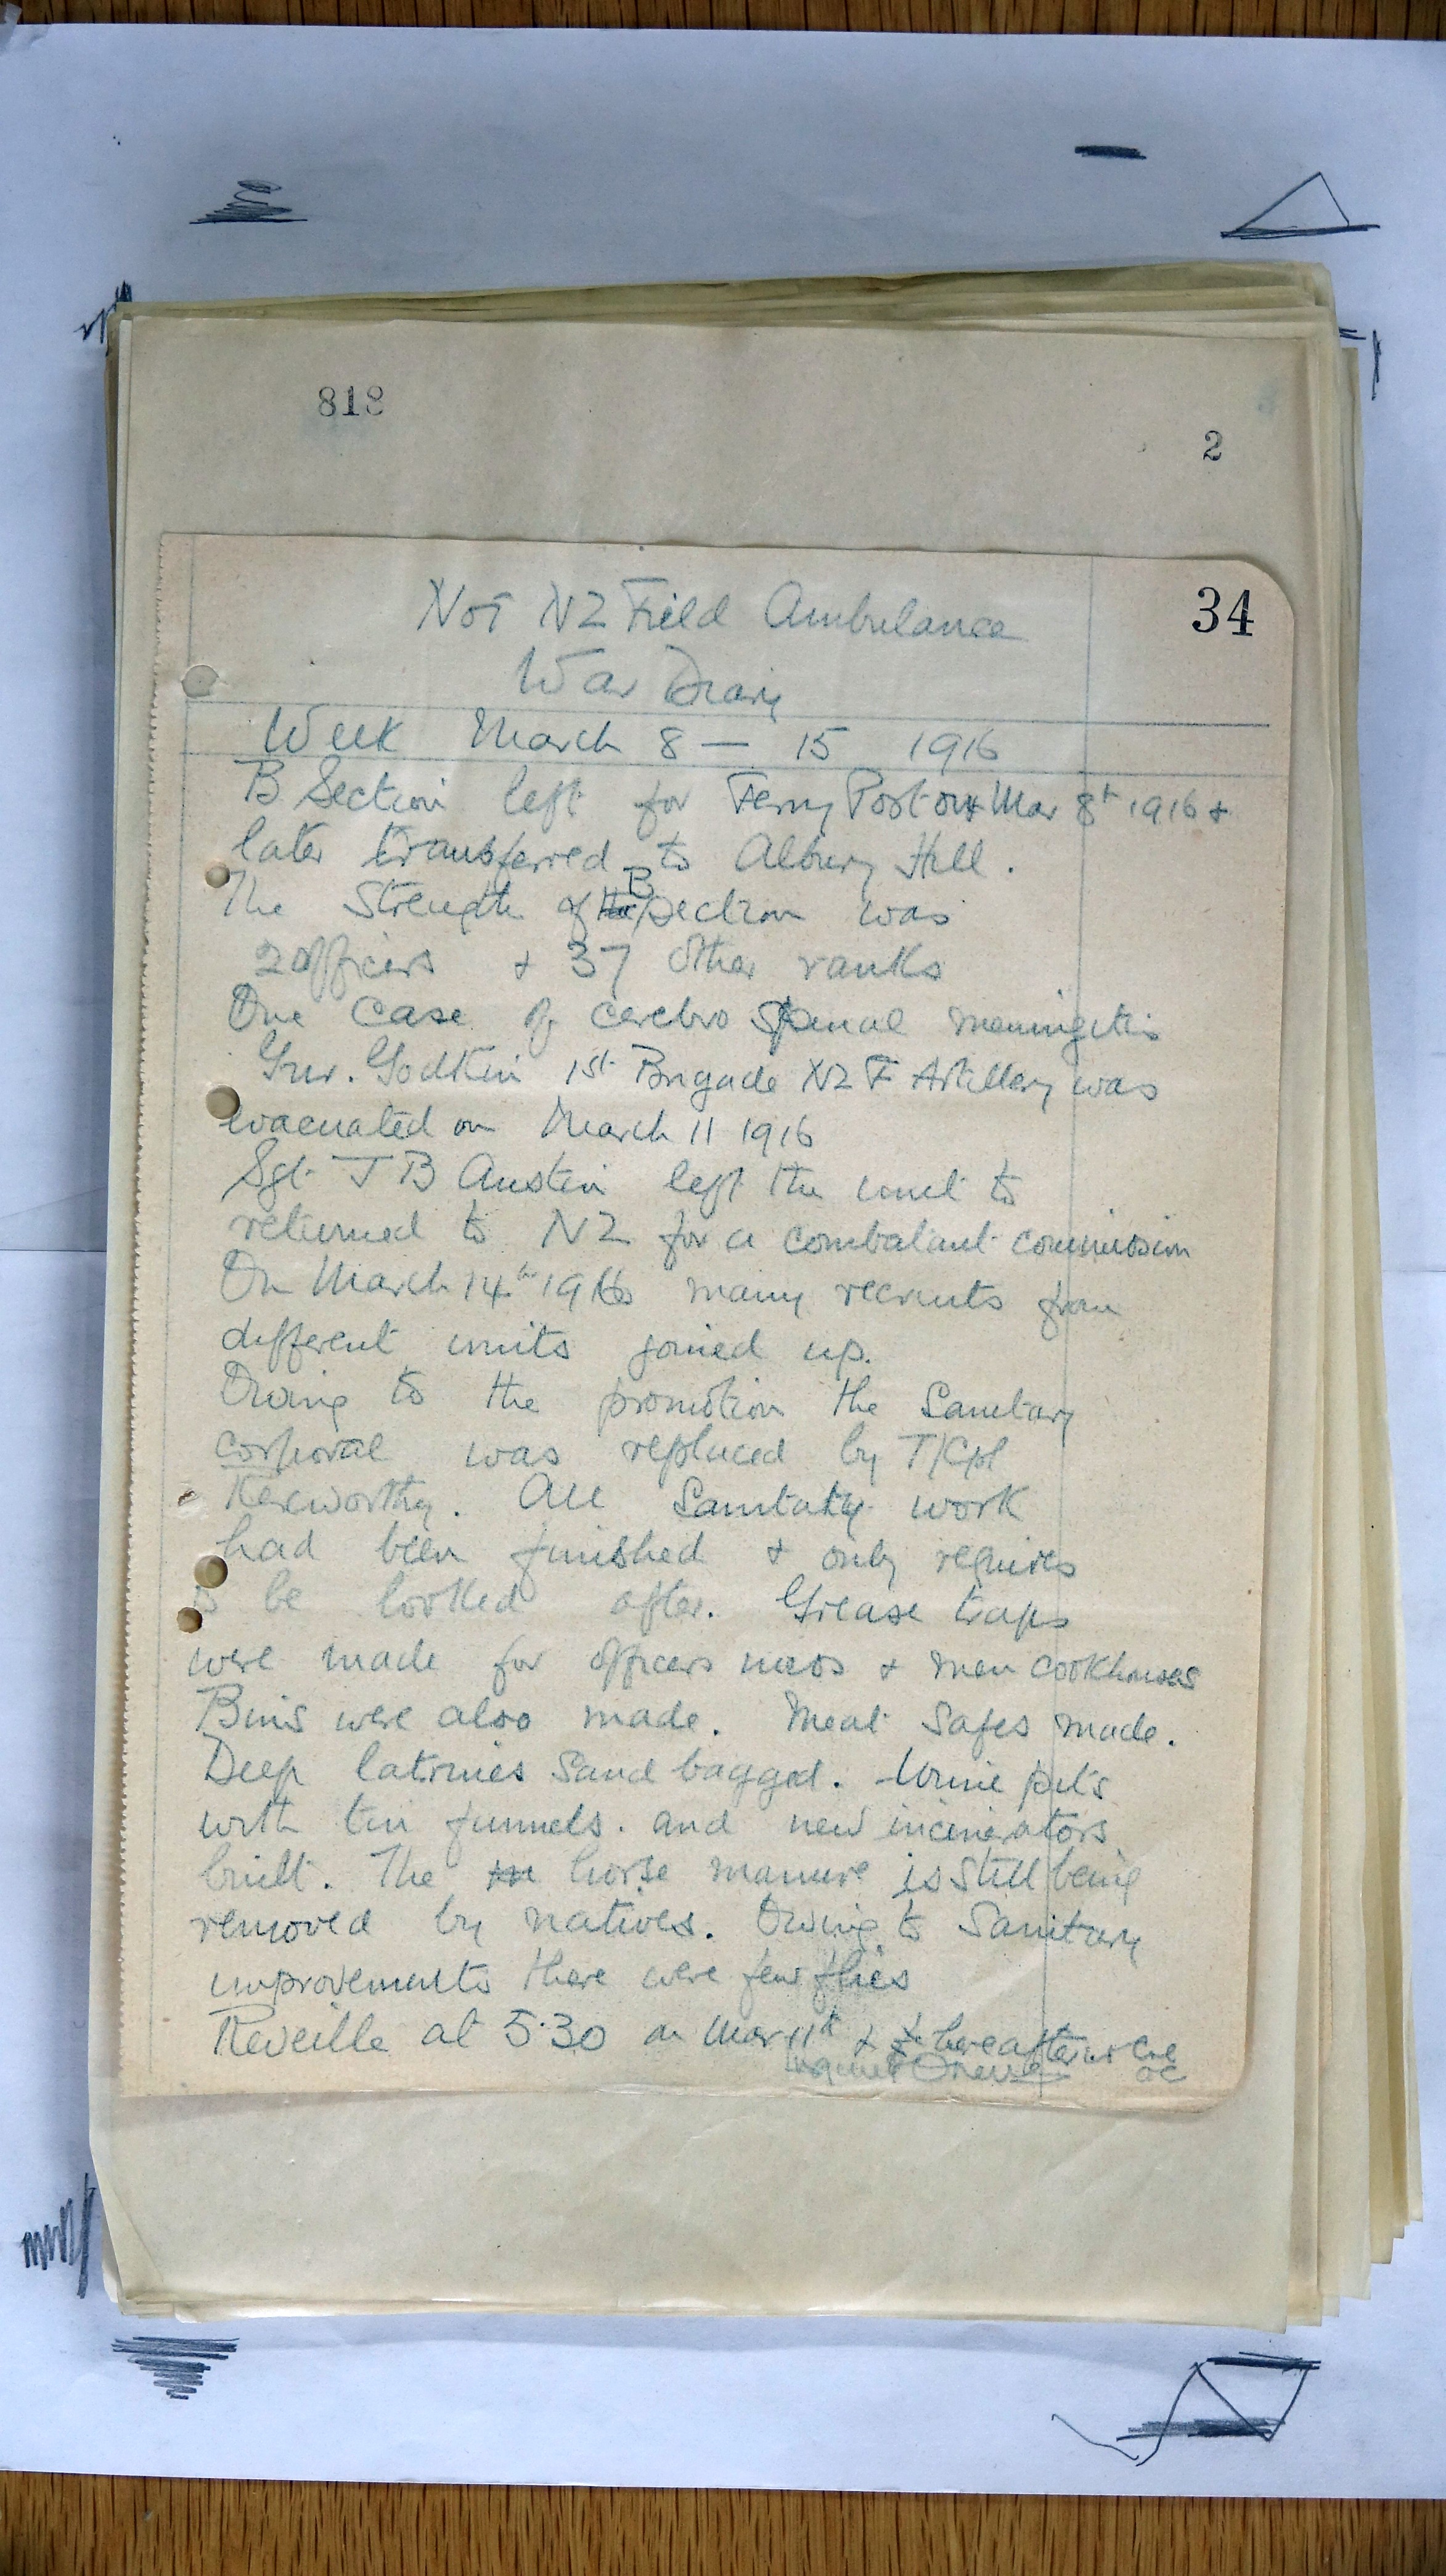 818
2
34
No 1 NZ Field Ambulance
War Diary
Week March 8 — 15 1916
B Section left for Ferry Post on Mar 8th 1916 +
later transferred to Albury Hill.
The Strength of B Section was
2 officers + 37 other ranks
One case of cerebro spinal meningitis
Gnr. Godkin 1st Brigade NZ F Artillery was
evacuated on March 11 1916
Sgt J B Austin left the unit to
returned to NZ for a combatant commission
On March 14th 1916 many recruits from
different units joined up.
Owing to the promotion the Sanitary
corporal was replaced by T/Cpl
Kenworthy. All Sanitary work
had been finished + only requires
to be looked after. Grease traps
were made for officers mess + men cookhouses
Bins were also made. Meat Safes made.
Deep latrines Sand bagged. Urine pits
with tin funnels. and new incinerators
built. The horse manure is still being
removed by natives. Owing to Sanitary
improvements there were few flies
Reveille at 5.30 on Mar 11th + thereafter
OC